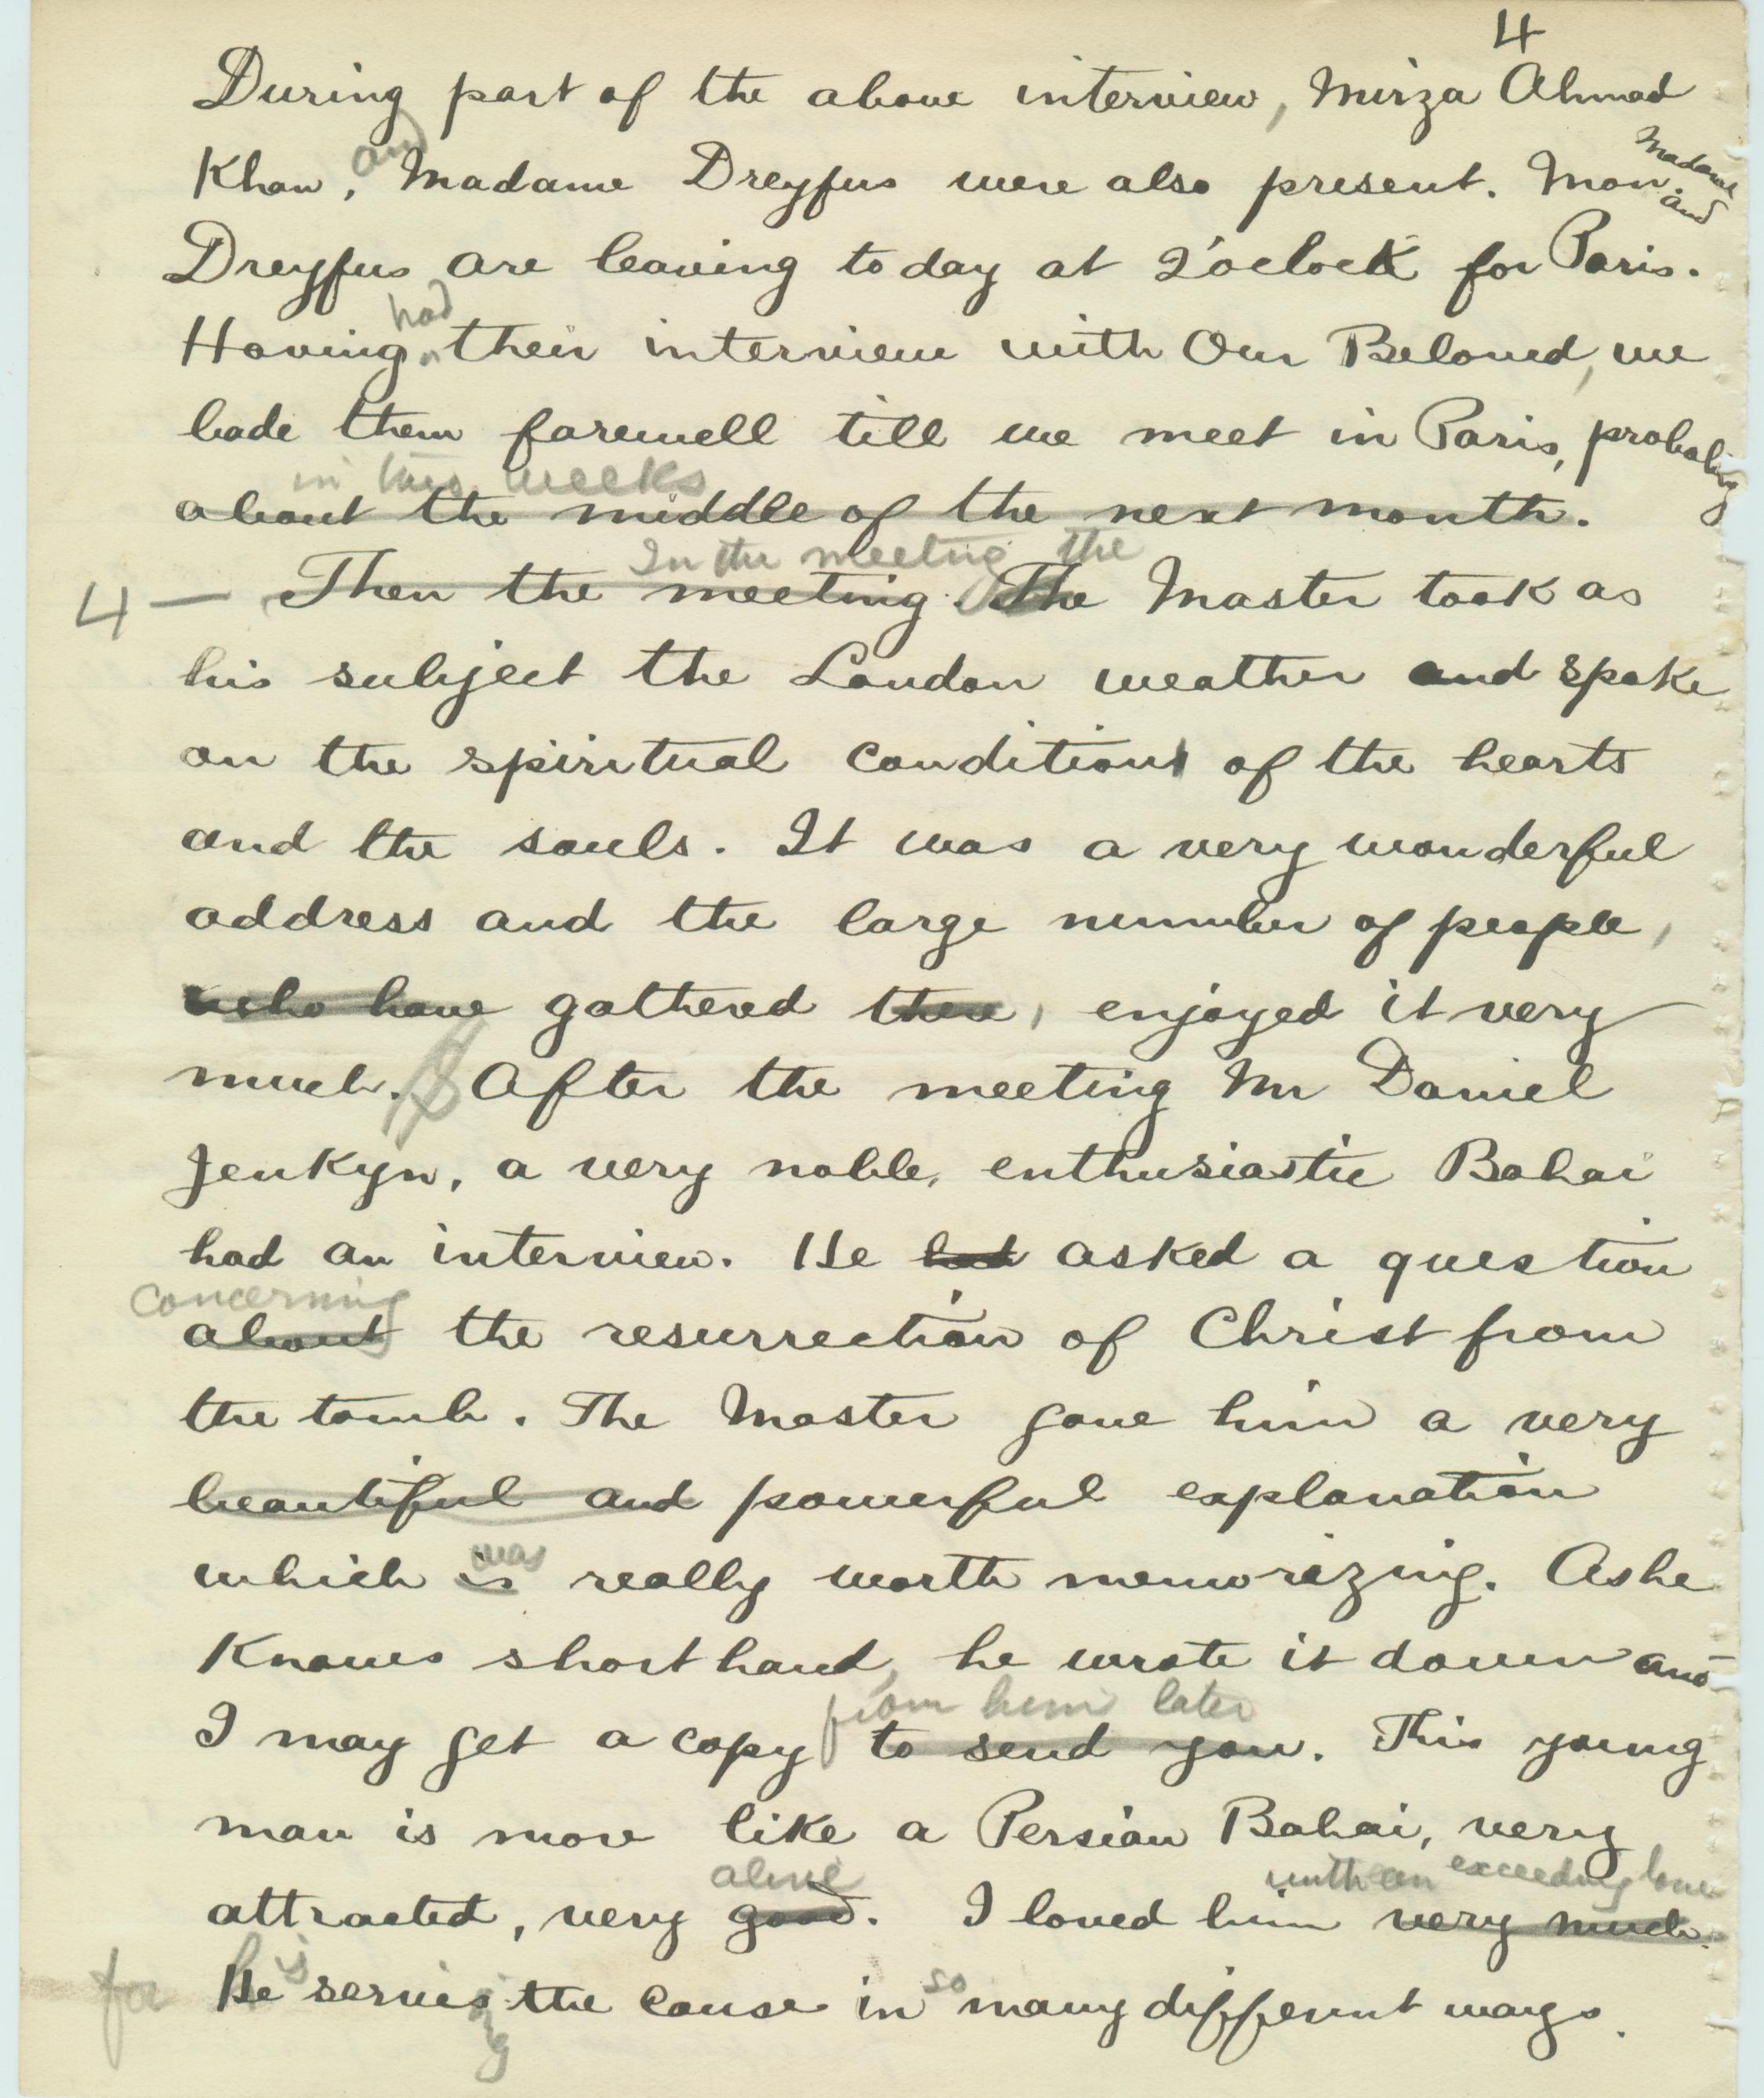 4
During part of the above interview, Mirza Ahmad
and
Khan, Madame Dreyfus were also present. Mon. and Madame
Dreyfus are leaving today at 2 o'clock for Paris.
had
Having their interview with Our Beloved, we
bade them farewell till we meet in Paris, probably
in two weeks
about the middle of the next month.
In the meeting the
4 — Then the meeting. The Master took as
his subject the London weather and spoke
on the spiritual conditions of the hearts
and the souls. It was a very wonderful
address and the large number of people,
who have gathered there, enjoyed it very
much. After the meeting Mr Daniel
Jenkyn, a very noble, enthusiastic Bahai
had an interview. He had asked a question
concerning
about the resurrection of Christ from
the tomb. The Master gave him a very
beautiful and powerful explanation
was
which is really worth memorizing. As he
Knows short hand, he wrote it down and
from him later
I may get a copy to send you. This young
man is more like a Persian Bahai, very
alive with an exceeding love
attracted, very good. I loved him very much.
is so
for He serves the Cause in many different ways.
ing